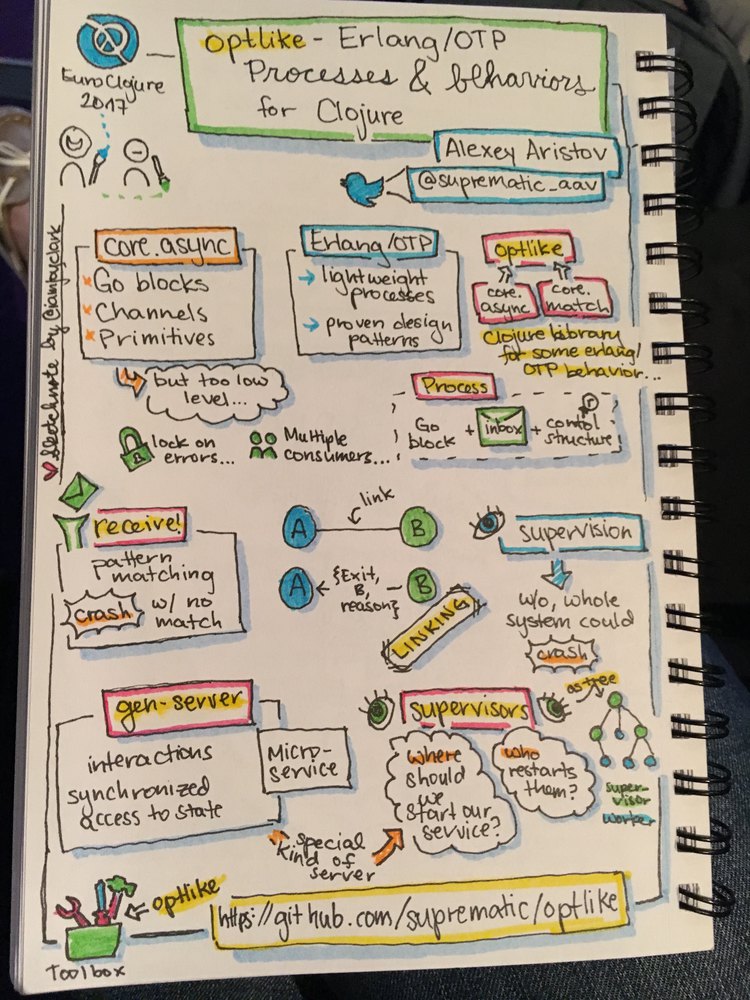 optlike - Erlang/OTP
Processes & behaviors
for Clojure
EuroClojure
2017
Alexey Aristov
@suprematic_aav
sketchnote by @iamjayclark
core.async
Go blocks
Channels
Primitives
but too low
level...
lock on
errors...
Multiple
consumers...
Erlang/OTP
lightweight
processes
proven design
patterns
optlike
core.
async
core.
match
Clojure library
for some erlang/
OTP behavior...
Process
Go
block
+
inbox
+
control
structure
receive!
pattern
matching
crash w/ no
match
link
A
B
A
{Exit,
B,
reason}
B
LINKING
supervision
w/o, whole
system could
crash
gen-server
interactions
synchronized
access to state
Micro-
service
special
kind of
server
supervisors
where
should
we
start our
service?
who
restarts
them?
as tree
super-
visor
worker
optlike
Toolbox
https://github.com/suprematic/optlike